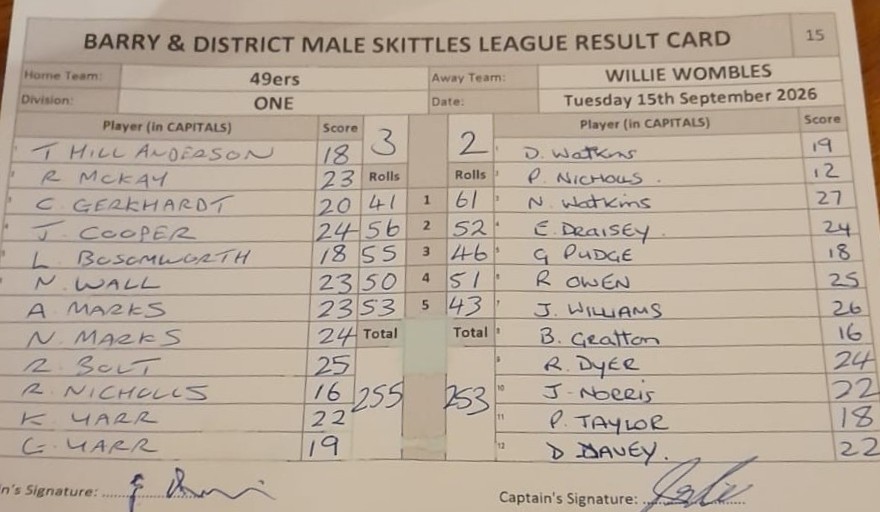 BARRY & DISTRICT MALE SKITTLES LEAGUE RESULT CARD 15
Home Team: 49ers Away Team: WILLIE WOMBLES
Division: ONE Date: Tuesday 15th September 2026
Player (in CAPITALS) Score 3 2 Player (in CAPITALS) Score
T HILL ANDERSON 18 1 D. Watkins 19
R MCKAY 23 Rolls Rolls 2 P. NICHOLLS. 12
C. GERKHARDT 20 41 1 61 3 N. Watkins 27
J. COOPER 24 56 2 52 4 E. DRAISEY. 24
L. BOSOMWORTH 18 55 3 46 5 G PUDGE 18
N. WALL 23 50 4 51 6 R OWEN 25
A. MARKS 23 53 5 43 7 J. WILLIAMS 26
N. MARKS 24 Total Total 8 B. Gratton 16
R. BOLT 25 9 R. DYER 24
R. NICHOLLS 16 255 253 10 J. Norris 22
K. YARR 22 11 P. TAYLOR 18
G. YARR 19 12 D DAVEY. 22
n's Signature: Captain's Signature: